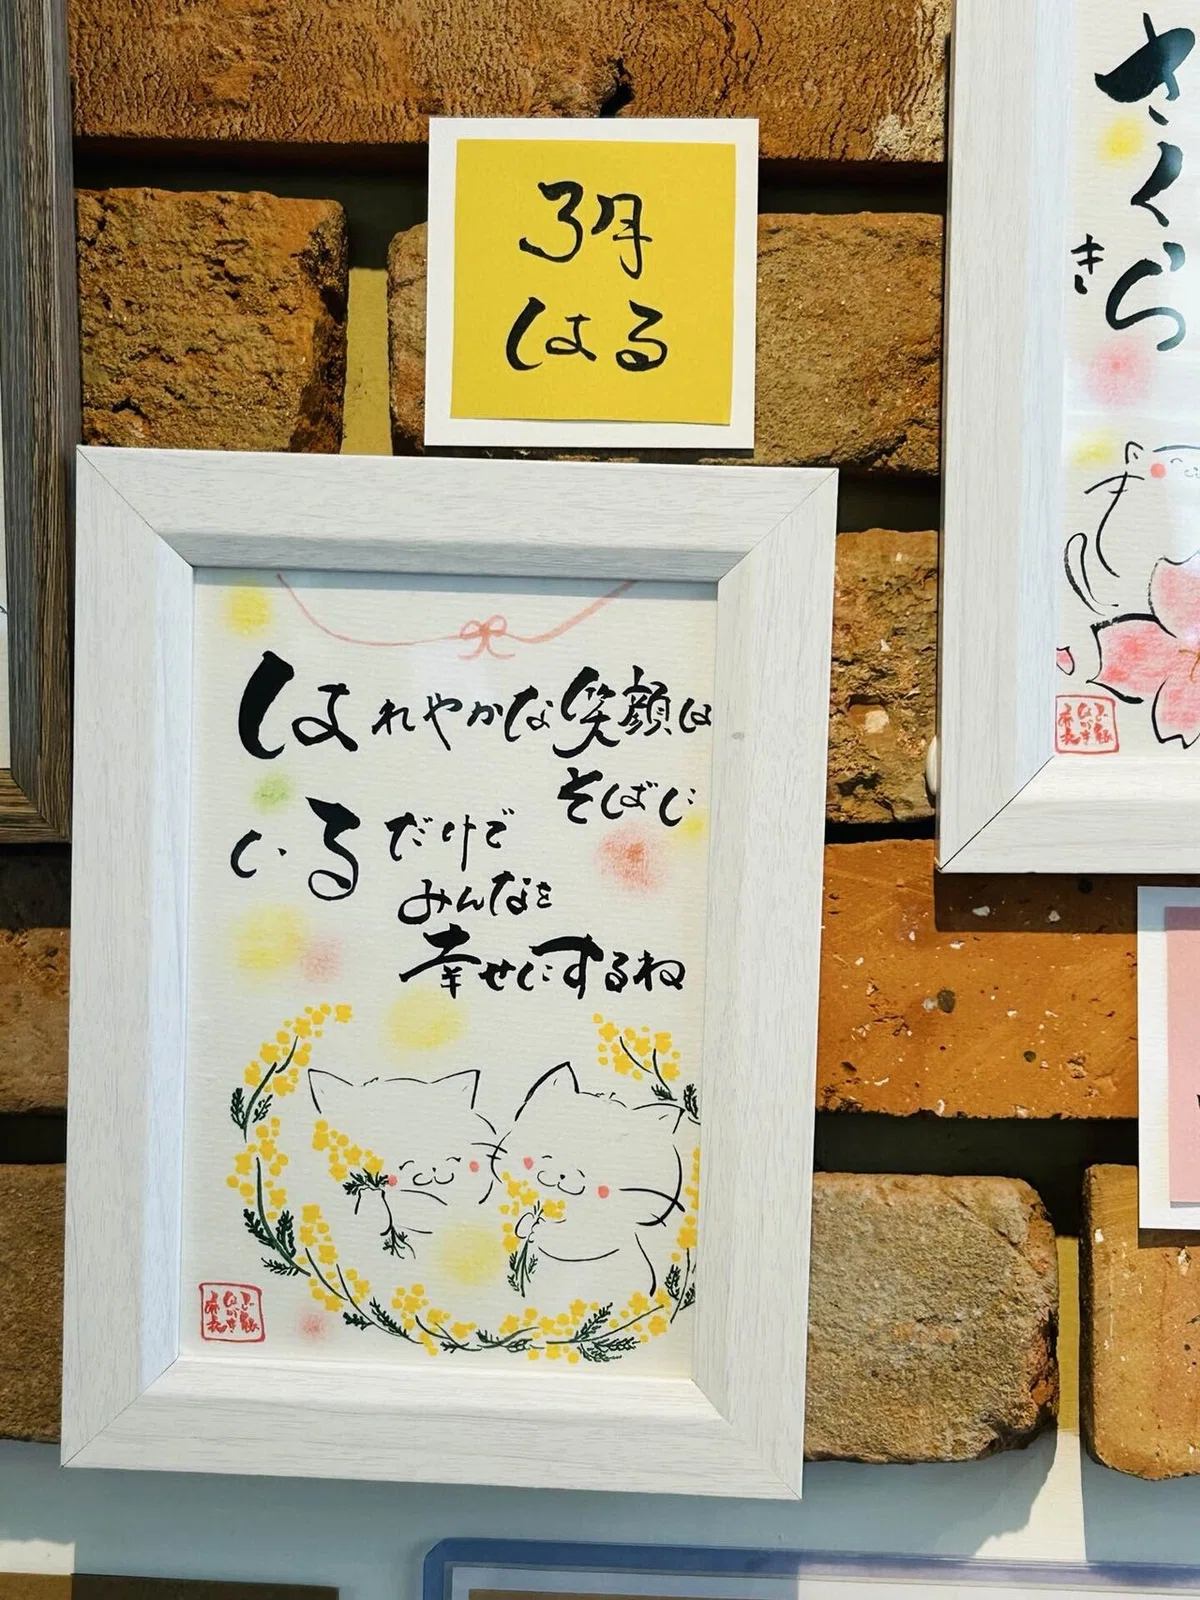 3月
はる
はれやかな笑顔は
そばに
いるだけで
みんなを
幸せにするね
さくら
き